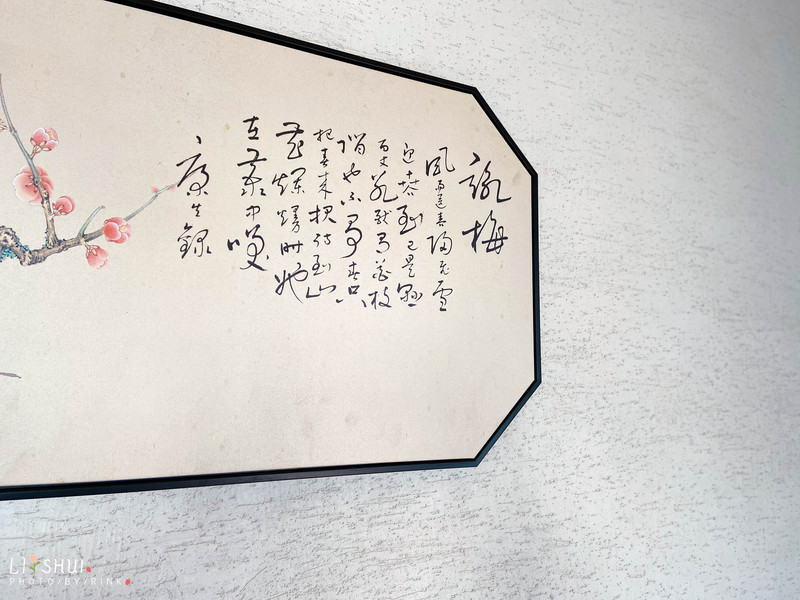 詠梅
風雨送春歸飛雪
迎春到已是懸
百丈冰猶有花枝
俏也不爭春只
把春來報待到山
花爛熳時她
在叢中笑
生錄
LISHUI
PHOTO/BY/RINK